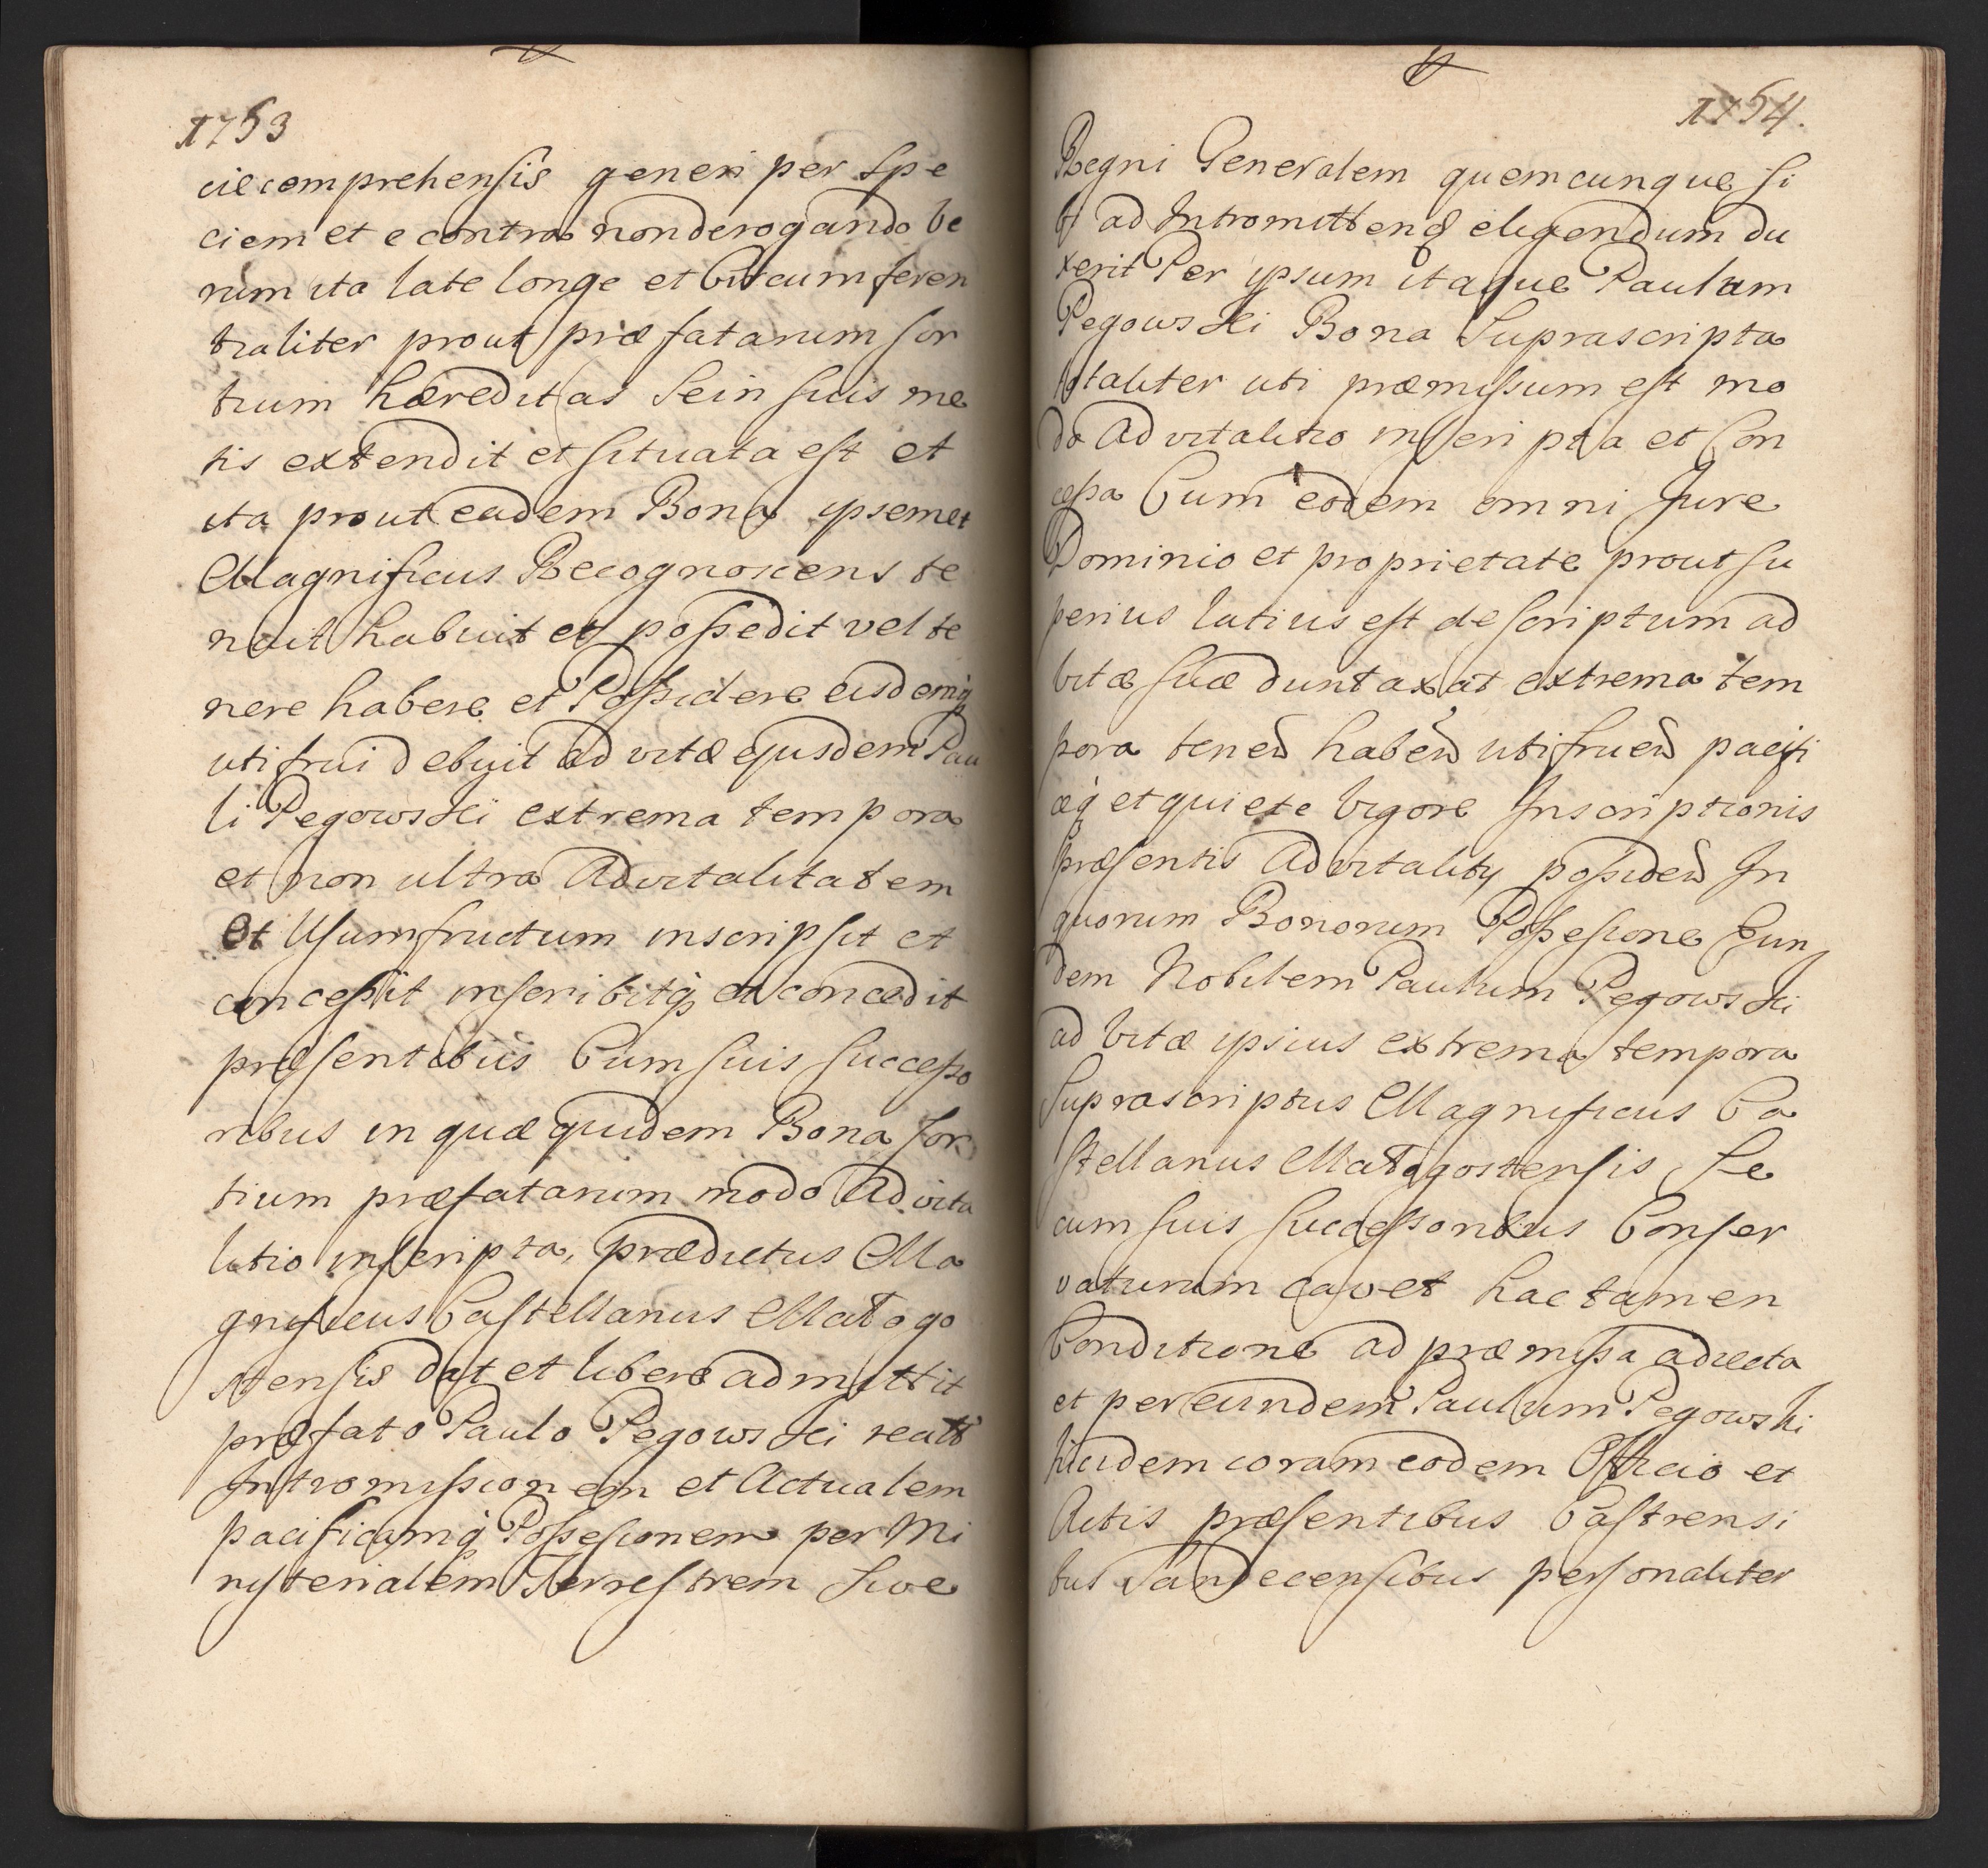 1753
cie comprehensis generi per spe
ciem et e contra non derogando ve
rum ita late longe et Circumferen
tialiter prout præfatarum sor
tium hæreditas se in suis me
tis extendit et situata est et
ita prout eadem Bona ipsemet
Magnificus Recognoscens te
nuit habuit et possedit vel te
nere habere et Possidere eisdemq
uti frui debuit ad vitæ ejusdem Pau
li Pegowski extrema tempora
et non ultra Advitalitatem
Et Usumfructum inscripsit et
concessit inscribitq et concedit
præsentibus Cum suis successo
ribus in quæ quidem Bona sor
tium præfatarum modo Advita
litio inscripta, prædictus Ma
gnificus Castellanus Małogo
stensis dat et libere admittit
præfato Paulo Pegowski realē
Intromissionem et Actualem
pacificamq Possessionem per Mi
nisterialem Terrestrem sive
1754.
Regni Generalem quemcunque si
bi ad Intromittend eligendum du
xerit Per ipsum itaque Paulum
Pegowski Bona Suprascripta
totaliter uti præmissum est mo
do Advitalitio inscripta et Con
cessa Cum eodem omni Jure
Dominio et proprietate prout su
perius latius est descriptum ad
vitæ suæ duntaxat extrema tem
pora tened habend utifruend pacifi
ceq et quiete vigore Inscriptionis
præsentis Advitality possidend In
quorum Bonorum Possessione Eun
dem Nobilem Paulum Pegowski
ad vitæ ipsius extrema tempora
Suprascriptus Magnificus Ca
stellanus Małogostensis Se
cum suis successoribus Conser
vaturum cavet hac tamen
Conditione ad præmissa adiecta
et per eundem Paulum Pegowski
hicidem coram eodem Officio et
Actis præsentibus Castrensi
bus Sandecensibus personaliter